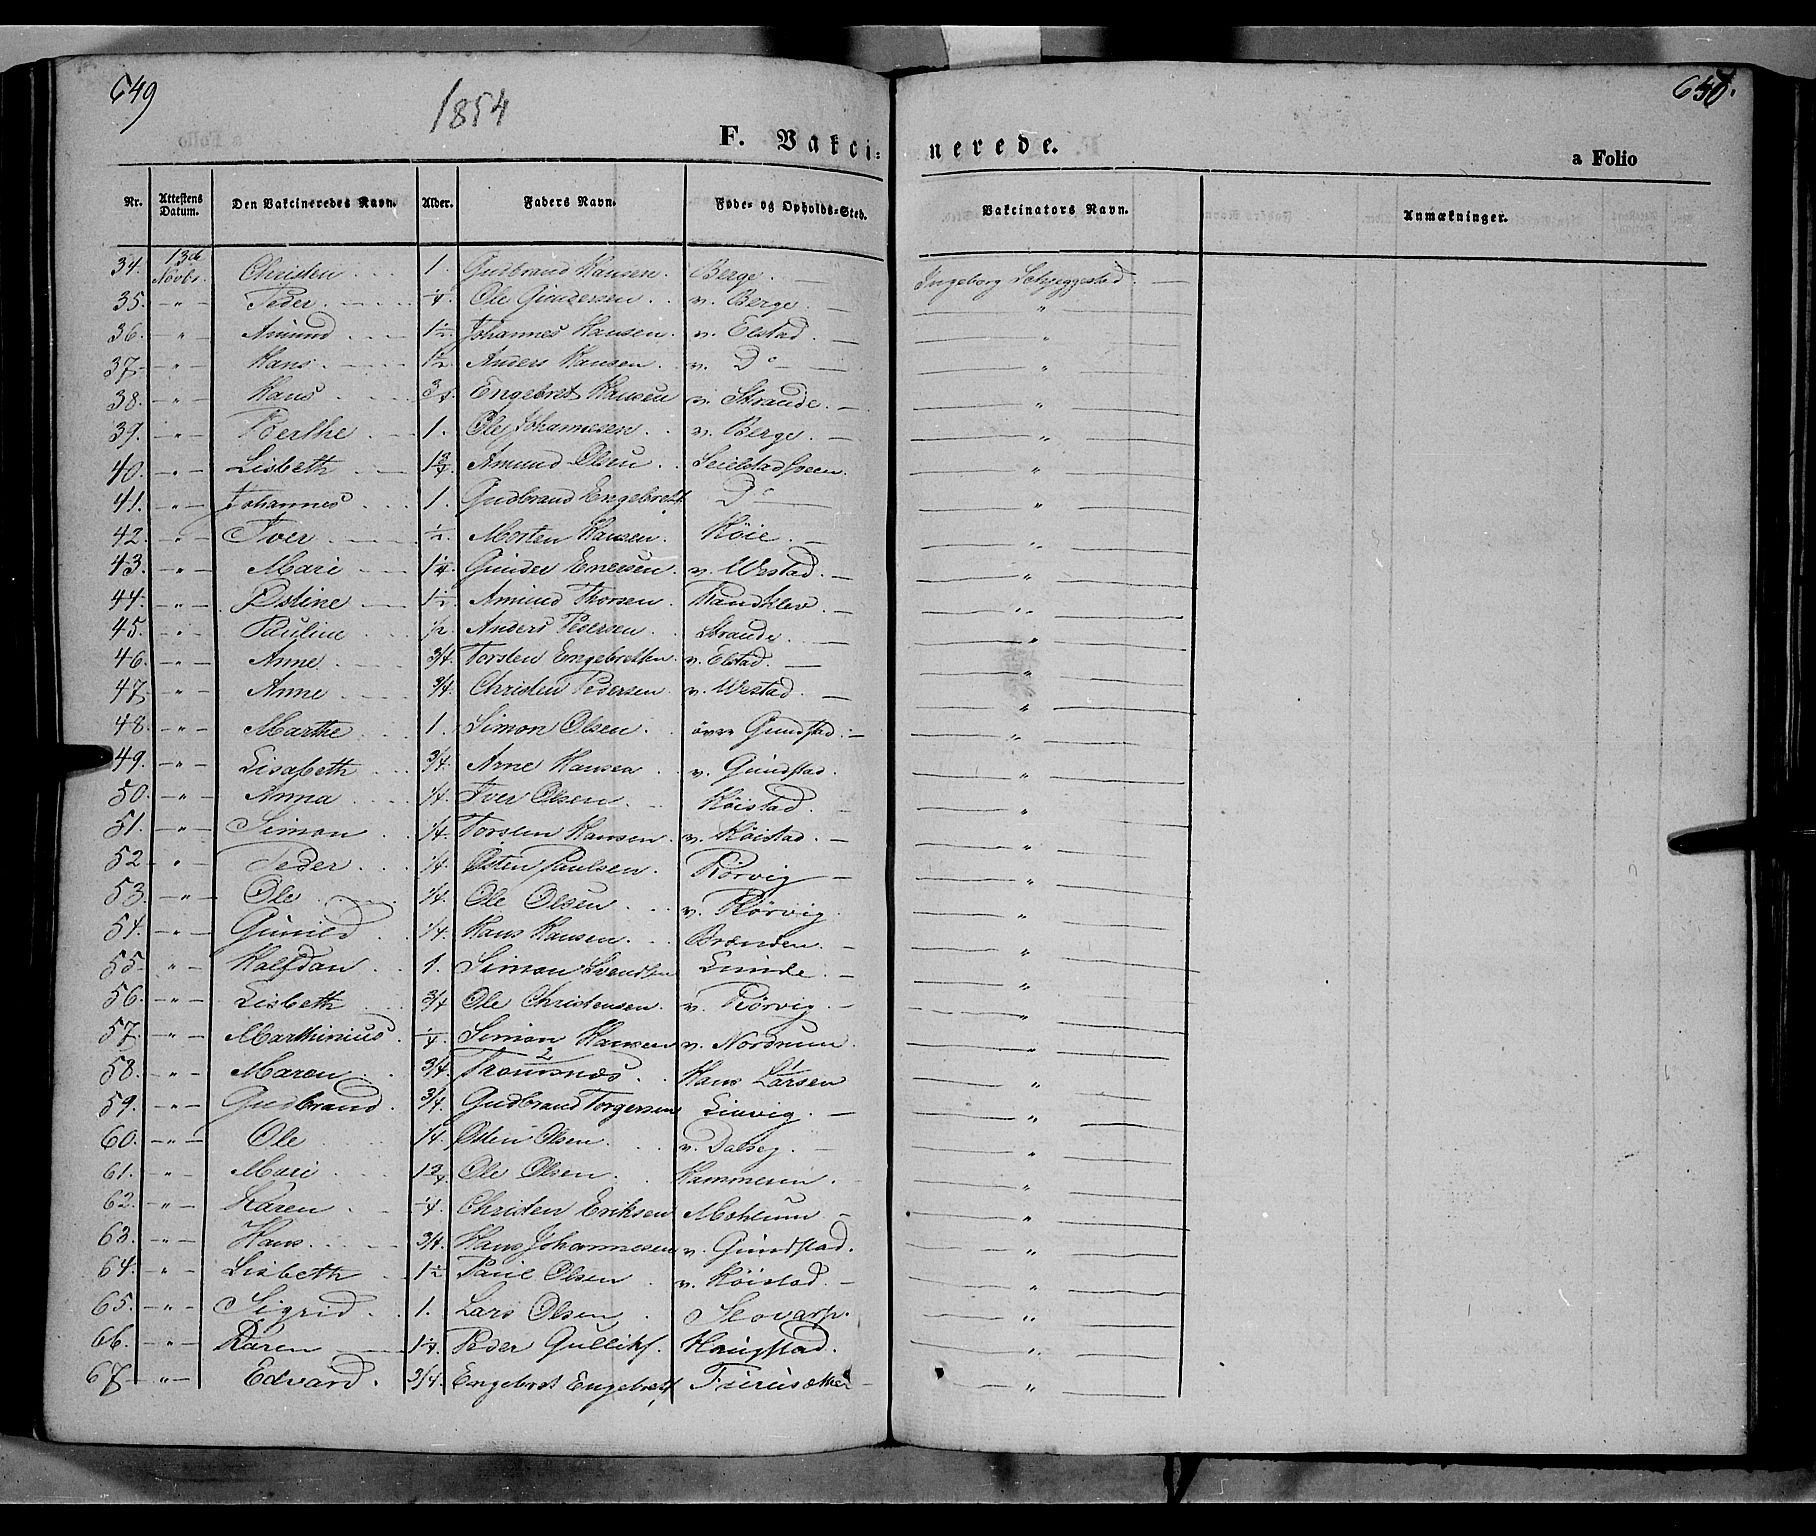 649
1854
650.
F. Vakcinerede.
a Folio
Nr. Attestens Datum. Den Vakcineredes Navn. Alder. Faders Navn. Føde- og Opholds-Sted. Vakcinators Navn. Anmærkninger.
34. 13de Novbr. Christen 1. Gudbrand Hansen. Berge. Ingeborg Skjeggestad.
35. " Peder 1/4. Ole Gundersen. v. Berge. "
36. " Amund 1 1/2. Johannes Hansen. v. Elstad. "
37. " Hans 1 1/2. Anders Hansen. v. Do "
38. " Hans 3/4. Engebret Hansen v. Strande. "
39. " Berthe 1. Ole Johannesen. v. Berge. "
40. " Lisbeth 1 3/4. Amund Olsen Seielstadsveen. "
41. " Johannes 1. Gudbrand Engebrets. Do "
42. " Iver 1/2. Morten Hansen. Høie. "
43. " Mari 1 1/4. Gunder Enersen v. Westad. "
44. " Østine 1 1/2. Amund Thorsen. Randklev. "
45. " Pauline 1/2. Anders Pedersen. Strande. "
46. " Anne 3/4. Torsten Engebretsen. v. Elstad. "
47. " Anne 3/4. Christen Pedersen v. Westad. "
48. " Marthe 1. Simon Olsen øvre Gunstad. "
49. " Lisabeth 3/4. Arne Hansen v. Gunstad. "
50. " Anna 1/4. Iver Olsen Høistad. "
51. " Simon 1/4. Torsten Hansen v. Høistad. "
52 " Peder 1/4. Østen Paulsen. Rørvig "
53. " Ole 1/4. Ole Olsen v. Rørvig. "
54. " Gunild 1/4. Hans Hansen. Brænden. "
55. " Halfdan 1. Simon Svendsen Lunde. "
56. " Lisbeth 3/4 Ole Christensen. v. Rørvig. "
57. " Marthinius 1/4 Simon Hansen v. Nordrum. "
58. " Maren 3/4. 2 Tromsnæs. 1 Hans Larsen "
59. " Gudbrand. 3/4. Gudbrand Torgersen Linvig. "
60. " Ole 1/4. Østen Olsen. v. Dalseg. "
61. " Mari 1 3/4. Ole Olsen Hammeren. "
62. " Karen 1/4. Christen Eriksen Moklum. "
63. " Hans 3/4. Hans Johannesen v. Gunstad. "
64. " Lisbeth 1 1/2 Paul Olsen v. Høistad. "
65. " Sigrid 1. Lars Olsen Skovarp. "
66. " Karen 1 1/4. Peder Gulliks. Haugstad. "
67. " Edvard. 3/4. Engebret Engebrets. Furusætter "